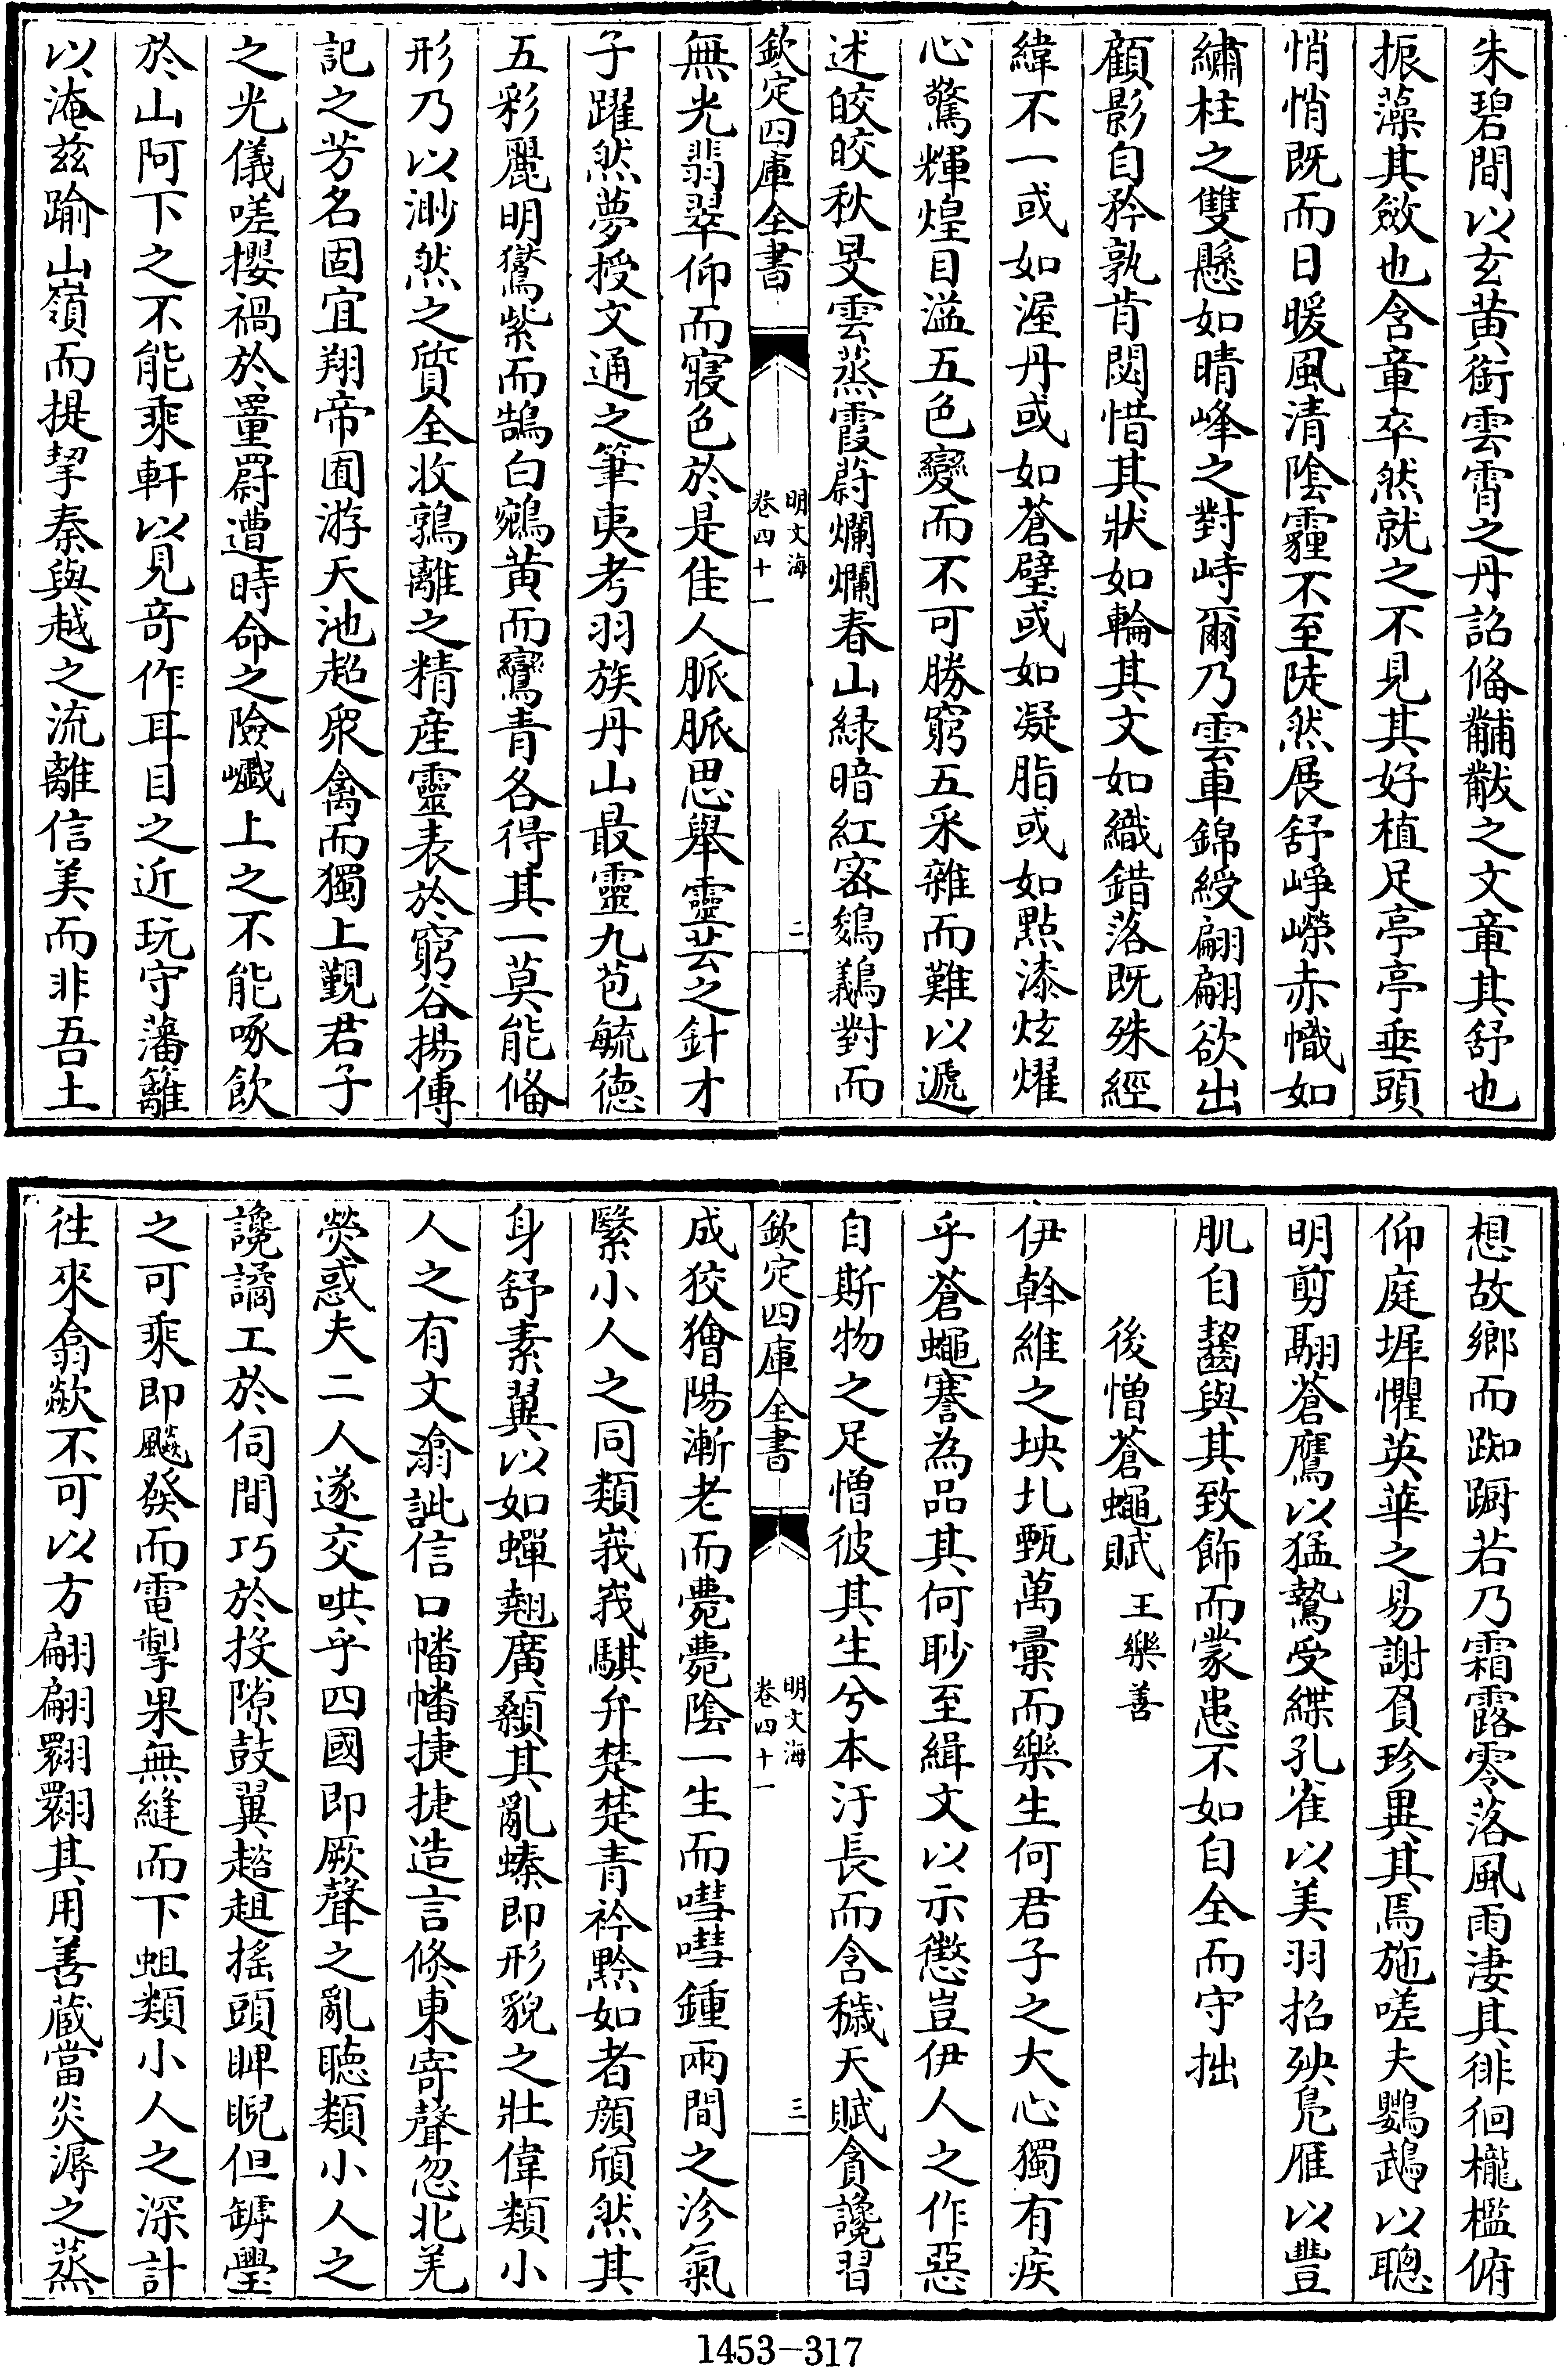 朱碧間以玄黄銜雲霄之丹詔俻黼黻之文章其舒也
振藻其斂也含章卒然就之不見其好植足亭亭垂頭
悄悄既而日暖風清陰霾不至陡然展舒崢嶸赤幟如
繡柱之雙懸如晴峰之對峙爾乃雲車錦綬翩翩欲出
顧影自矜孰肯閟惜其狀如輪其文如織錯落既殊經
緯不一或如渥丹或如蒼璧或如凝脂或如點漆炫燿
心驚輝煌目溢五色變而不可勝窮五采雜而難以遞
述皎皎秋旻雲蒸霞蔚爛爛春山緑暗紅宻鷄鵕對而
欽定四庫全書
明文海
卷四十一
二
無光翡翠仰而寢色於是佳人脈脈思舉靈芸之針才
子躍然夢授文通之筆吏考羽族丹山最靈九苞毓徳
五彩麗明鸑紫而鵠白鵷黄而鸞青各得其一莫能俻
形乃以渺然之質全收鶉離之精産靈表於窮谷揚傳
記之芳名固宜翔帝囿游天池超衆禽而獨上覲君子
之光儀嗟攖禍於罿罻遭時命之險巇上之不能啄飲
於山阿下之不能乘軒以見竒作耳目之近玩守藩籬
以淹兹踰山嶺而提挈秦與越之流離信美而非吾土
想故鄉而踟蹰若乃霜露零落風雨凄其徘徊櫳檻俯
仰庭墀懼英華之易謝負珍異其焉施嗟夫鸚鵡以聰
明剪翮蒼鷹以猛鷙受緤孔雀以美羽招殃鳬雁以豐
肌自齧與其致飾而蒙患不如自全而守拙
後憎蒼蠅賦 王樂善
伊斡維之坱圠甄萬彙而樂生何君子之大心獨有疾
乎蒼蠅謇為品其何眇至緝文以示懲豈伊人之作惡
自斯物之足憎彼其生兮本汙長而含穢天賦貪讒習
欽定四庫全書
明文海
卷四十一
三
成狡獪陽漸老而薨薨陰一生而嘒嘒鍾兩間之沴氣
繄小人之同類峩峩騏弁楚楚青衿黔如者顔頎然其
身舒素翼以如蟬翹廣顙其亂螓即形貌之壯偉類小
人之有文潝訿信口幡幡捷捷造言倏東寄聲忽北羌
熒惑夫二人遂交哄乎四國即厥聲之亂聽類小人之
讒譎工於伺間巧於投隙鼓翼趦趄摇頭睥睨但罅舋
之可乘即飈發而電掣果無縫而下蛆類小人之深計
徃來翕歘不可以方翩翩翾翾其用善藏當炎溽之蒸
1453-317